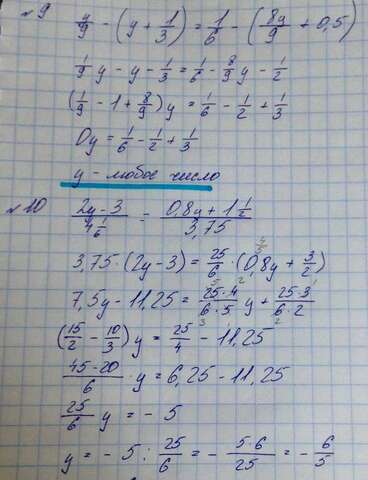 №9 y/9 - (y + 1/3) = 1/6 - (8y/9 + 0,5)
1/9 y - y - 1/3 = 1/6 - 8/9 y - 1/2
(1/9 - 1 + 8/9) y = 1/6 - 1/2 + 1/3
0y = 1/6 - 1/2 + 1/3
y - любое число
№10 (2y - 3)/(4 1/6) = (0,8y + 1 1/2)/3,75
3,75 · (2y - 3) = 25/6 · (0,8y + 3/2)
7,5y - 11,25 = (25·4)/(6·5) y + (25·3)/(6·2)
(15/2 - 10/3) y = 25/4 - 11,25
(45-20)/6 · y = 6,25 - 11,25
25/6 y = - 5
y = - 5 : 25/6 = - (5·6)/25 = - 6/5